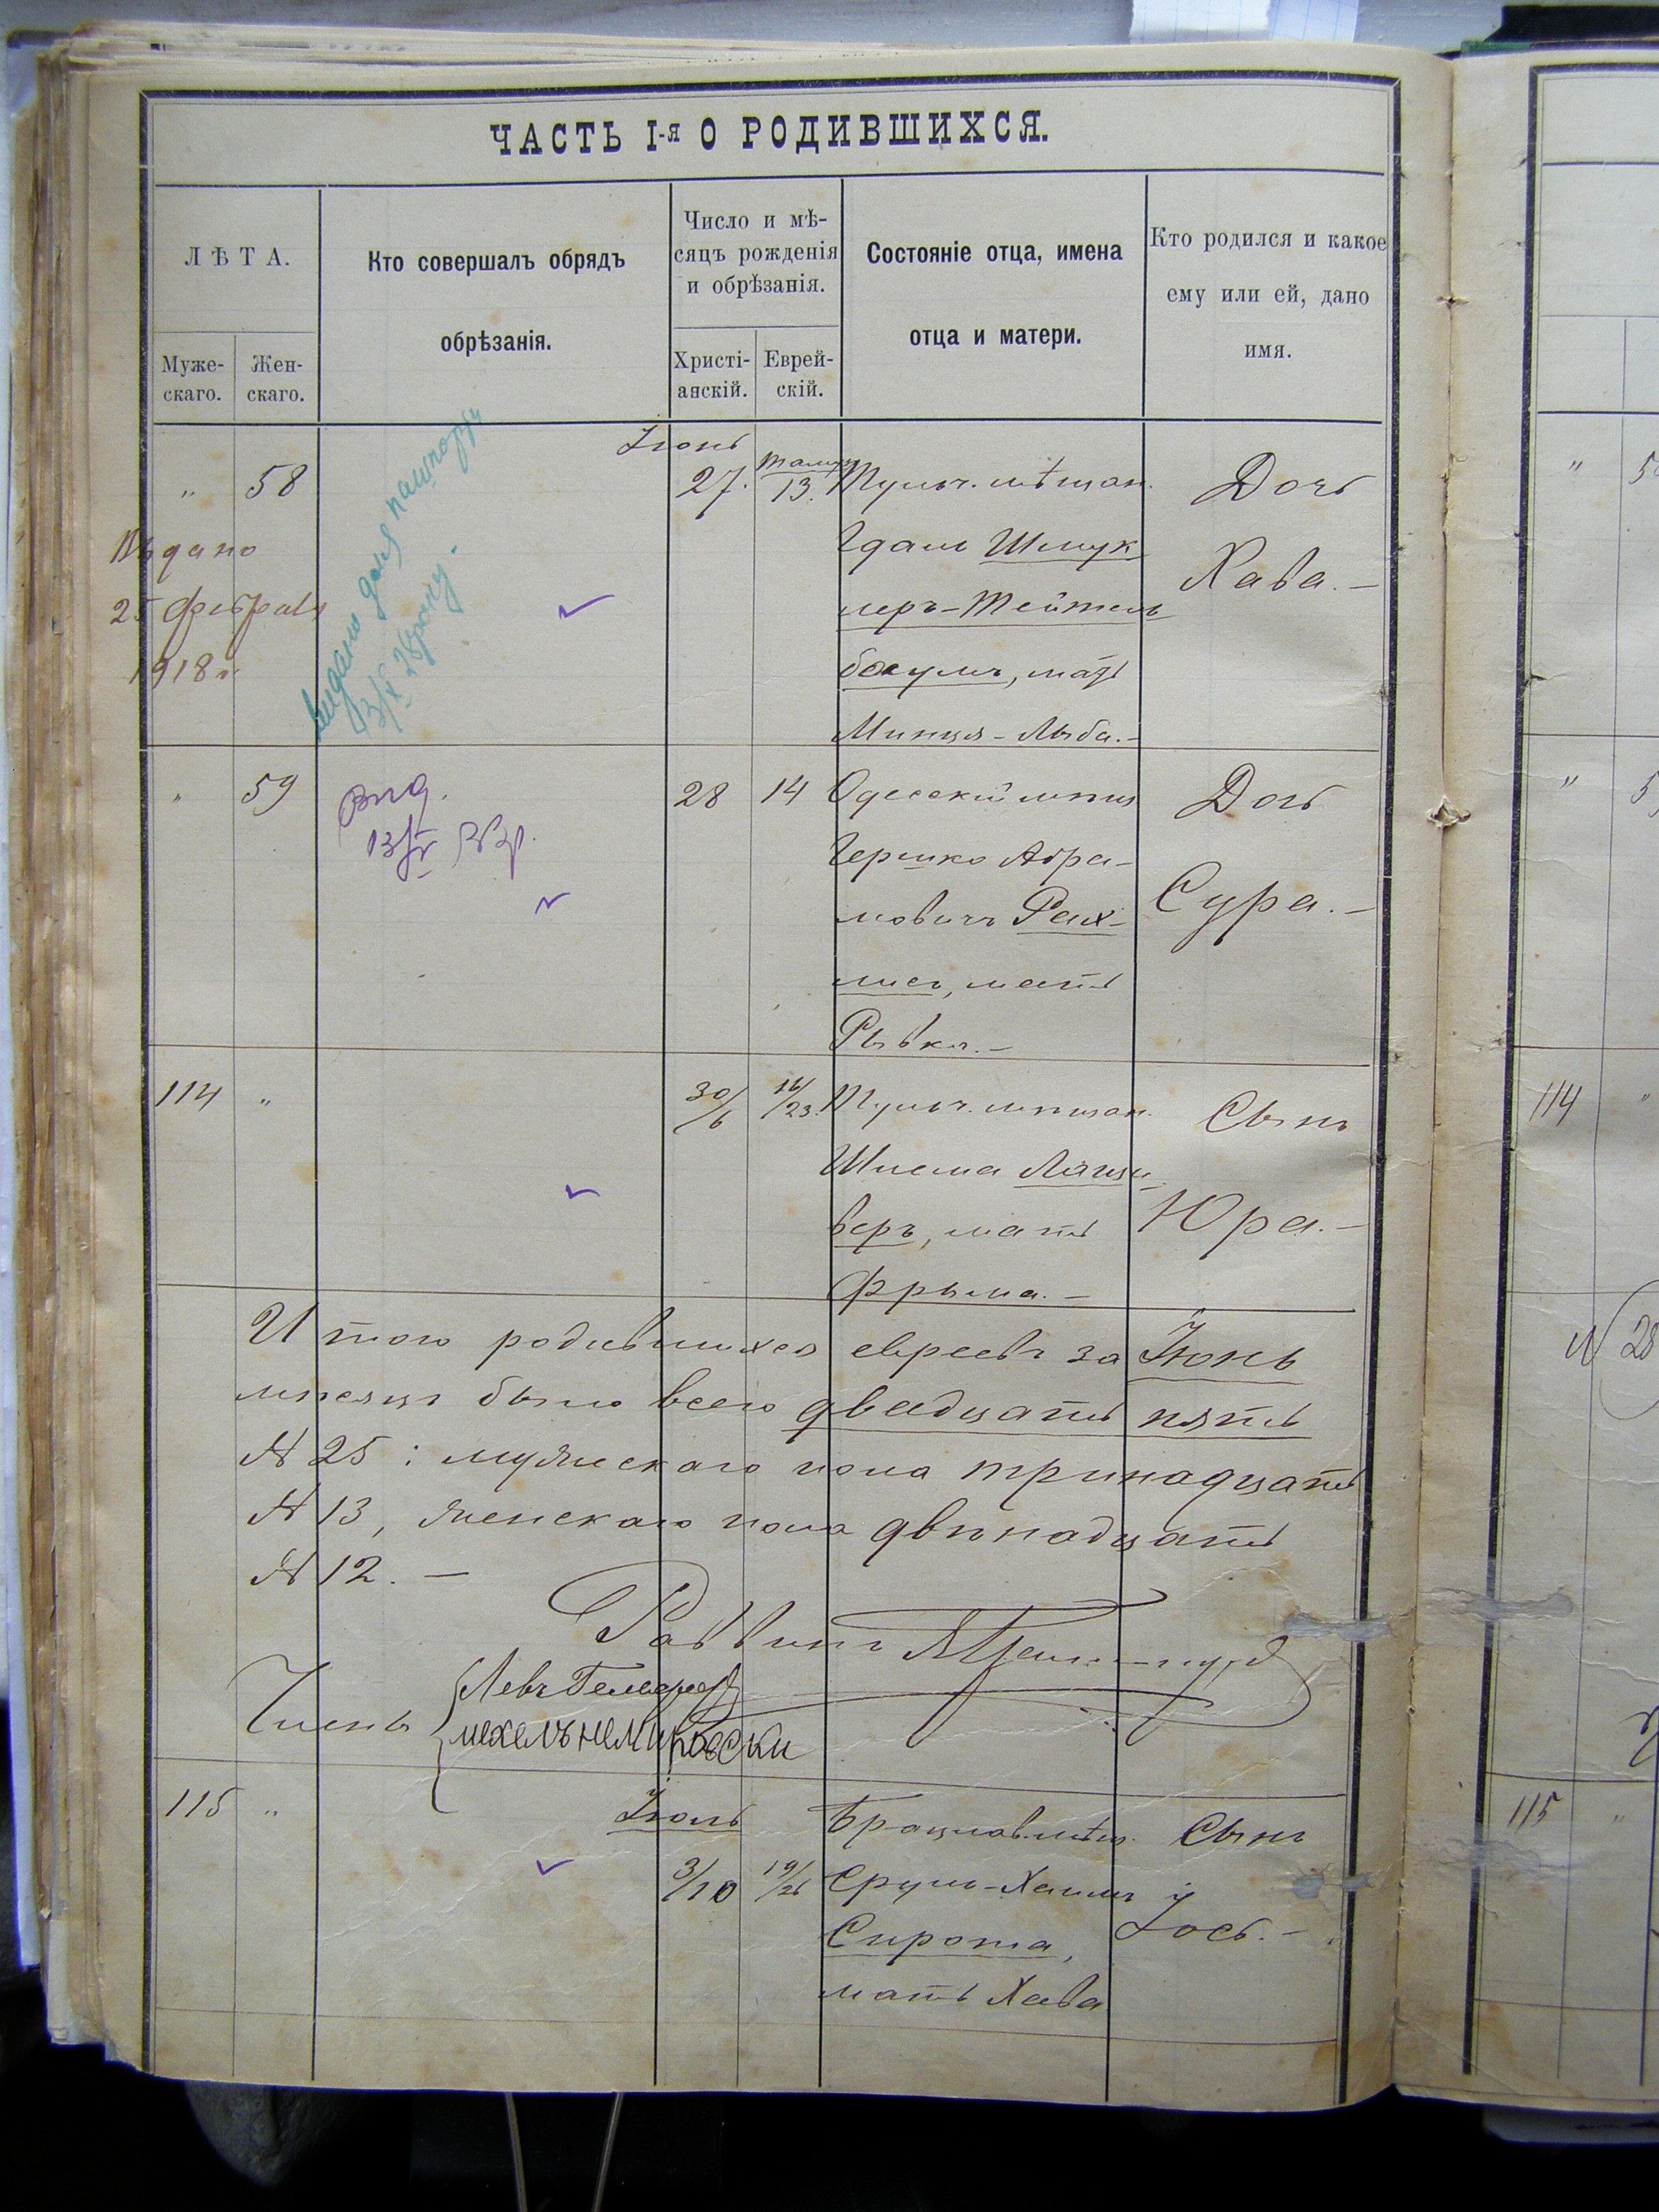 ЧАСТЬ I-я О РОДИВШИХСЯ.
ЛѢТА.
Муже-
скаго.
Жен-
скаго.
Кто совершалъ обрядъ
обрѣзанія.
Число и мѣ-
сяцъ рожденія
и обрѣзанія.
Христі-
анскій.
Еврей-
скій.
Состояніе отца, имена
отца и матери.
Кто родился и какое
ему или ей, дано
имя.
„ 58
Выдано
25 февраля
1918 г.
Июнь
27. 13.
Тульч. мѣщан.
Шмук
леръ-Тейтель
баумъ, мать
Минця-Лыба.-
Дочь
Хава.-
„ 59
Вид.
28 14
Одесскій мѣщ
Гершко Абра-
мовичъ Рах-
лисъ, мать
Рывка.-
Дочь
Сура.-
114 „
30/6 16/23.
Тульч. мѣщан.
Шлема
веръ, мать
Фрыма.-
Сынъ
Юра.-
Итого родившихся евреевъ за Июнь
мѣсяцъ было всего двадцать пять
№ 25: мужескаго пола тринадцать
№ 13, женскаго пола двѣнадцать
№ 12.-
Раввинъ
Члены
Левъ
Мехель Немировски
115 „
Июль
3/10 19/26
Брацлав. мѣщ.
Сруль-Хаимъ
Сирота,
мать Хава
Сынъ
Иось.-
114 „
115 „